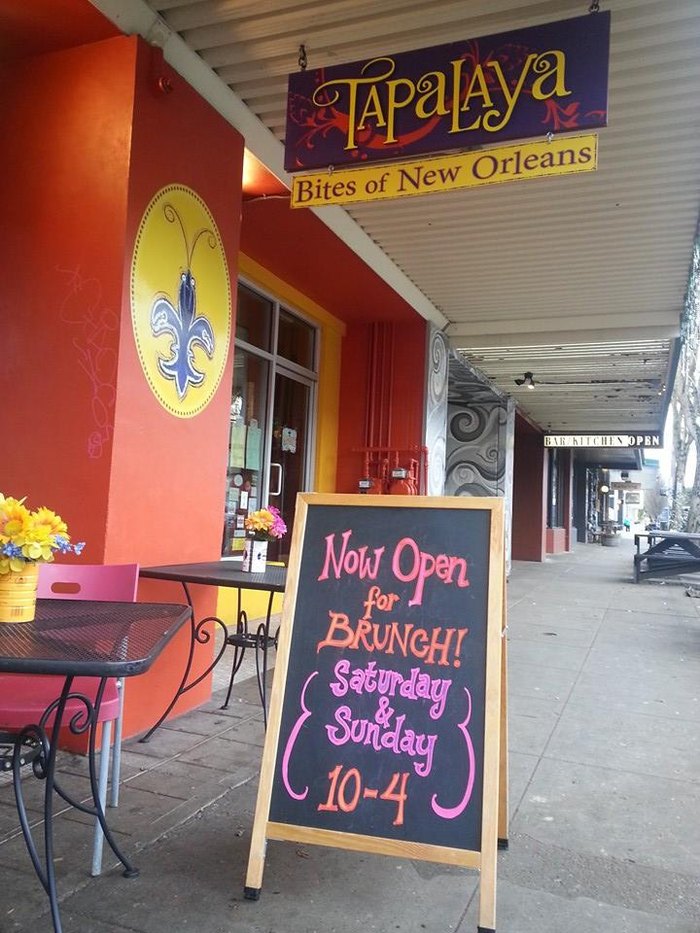 TAPALAYA
Bites of New Orleans
BAR KITCHEN OPEN
Now Open
for
BRUNCH!
Saturday
&
Sunday
10-4